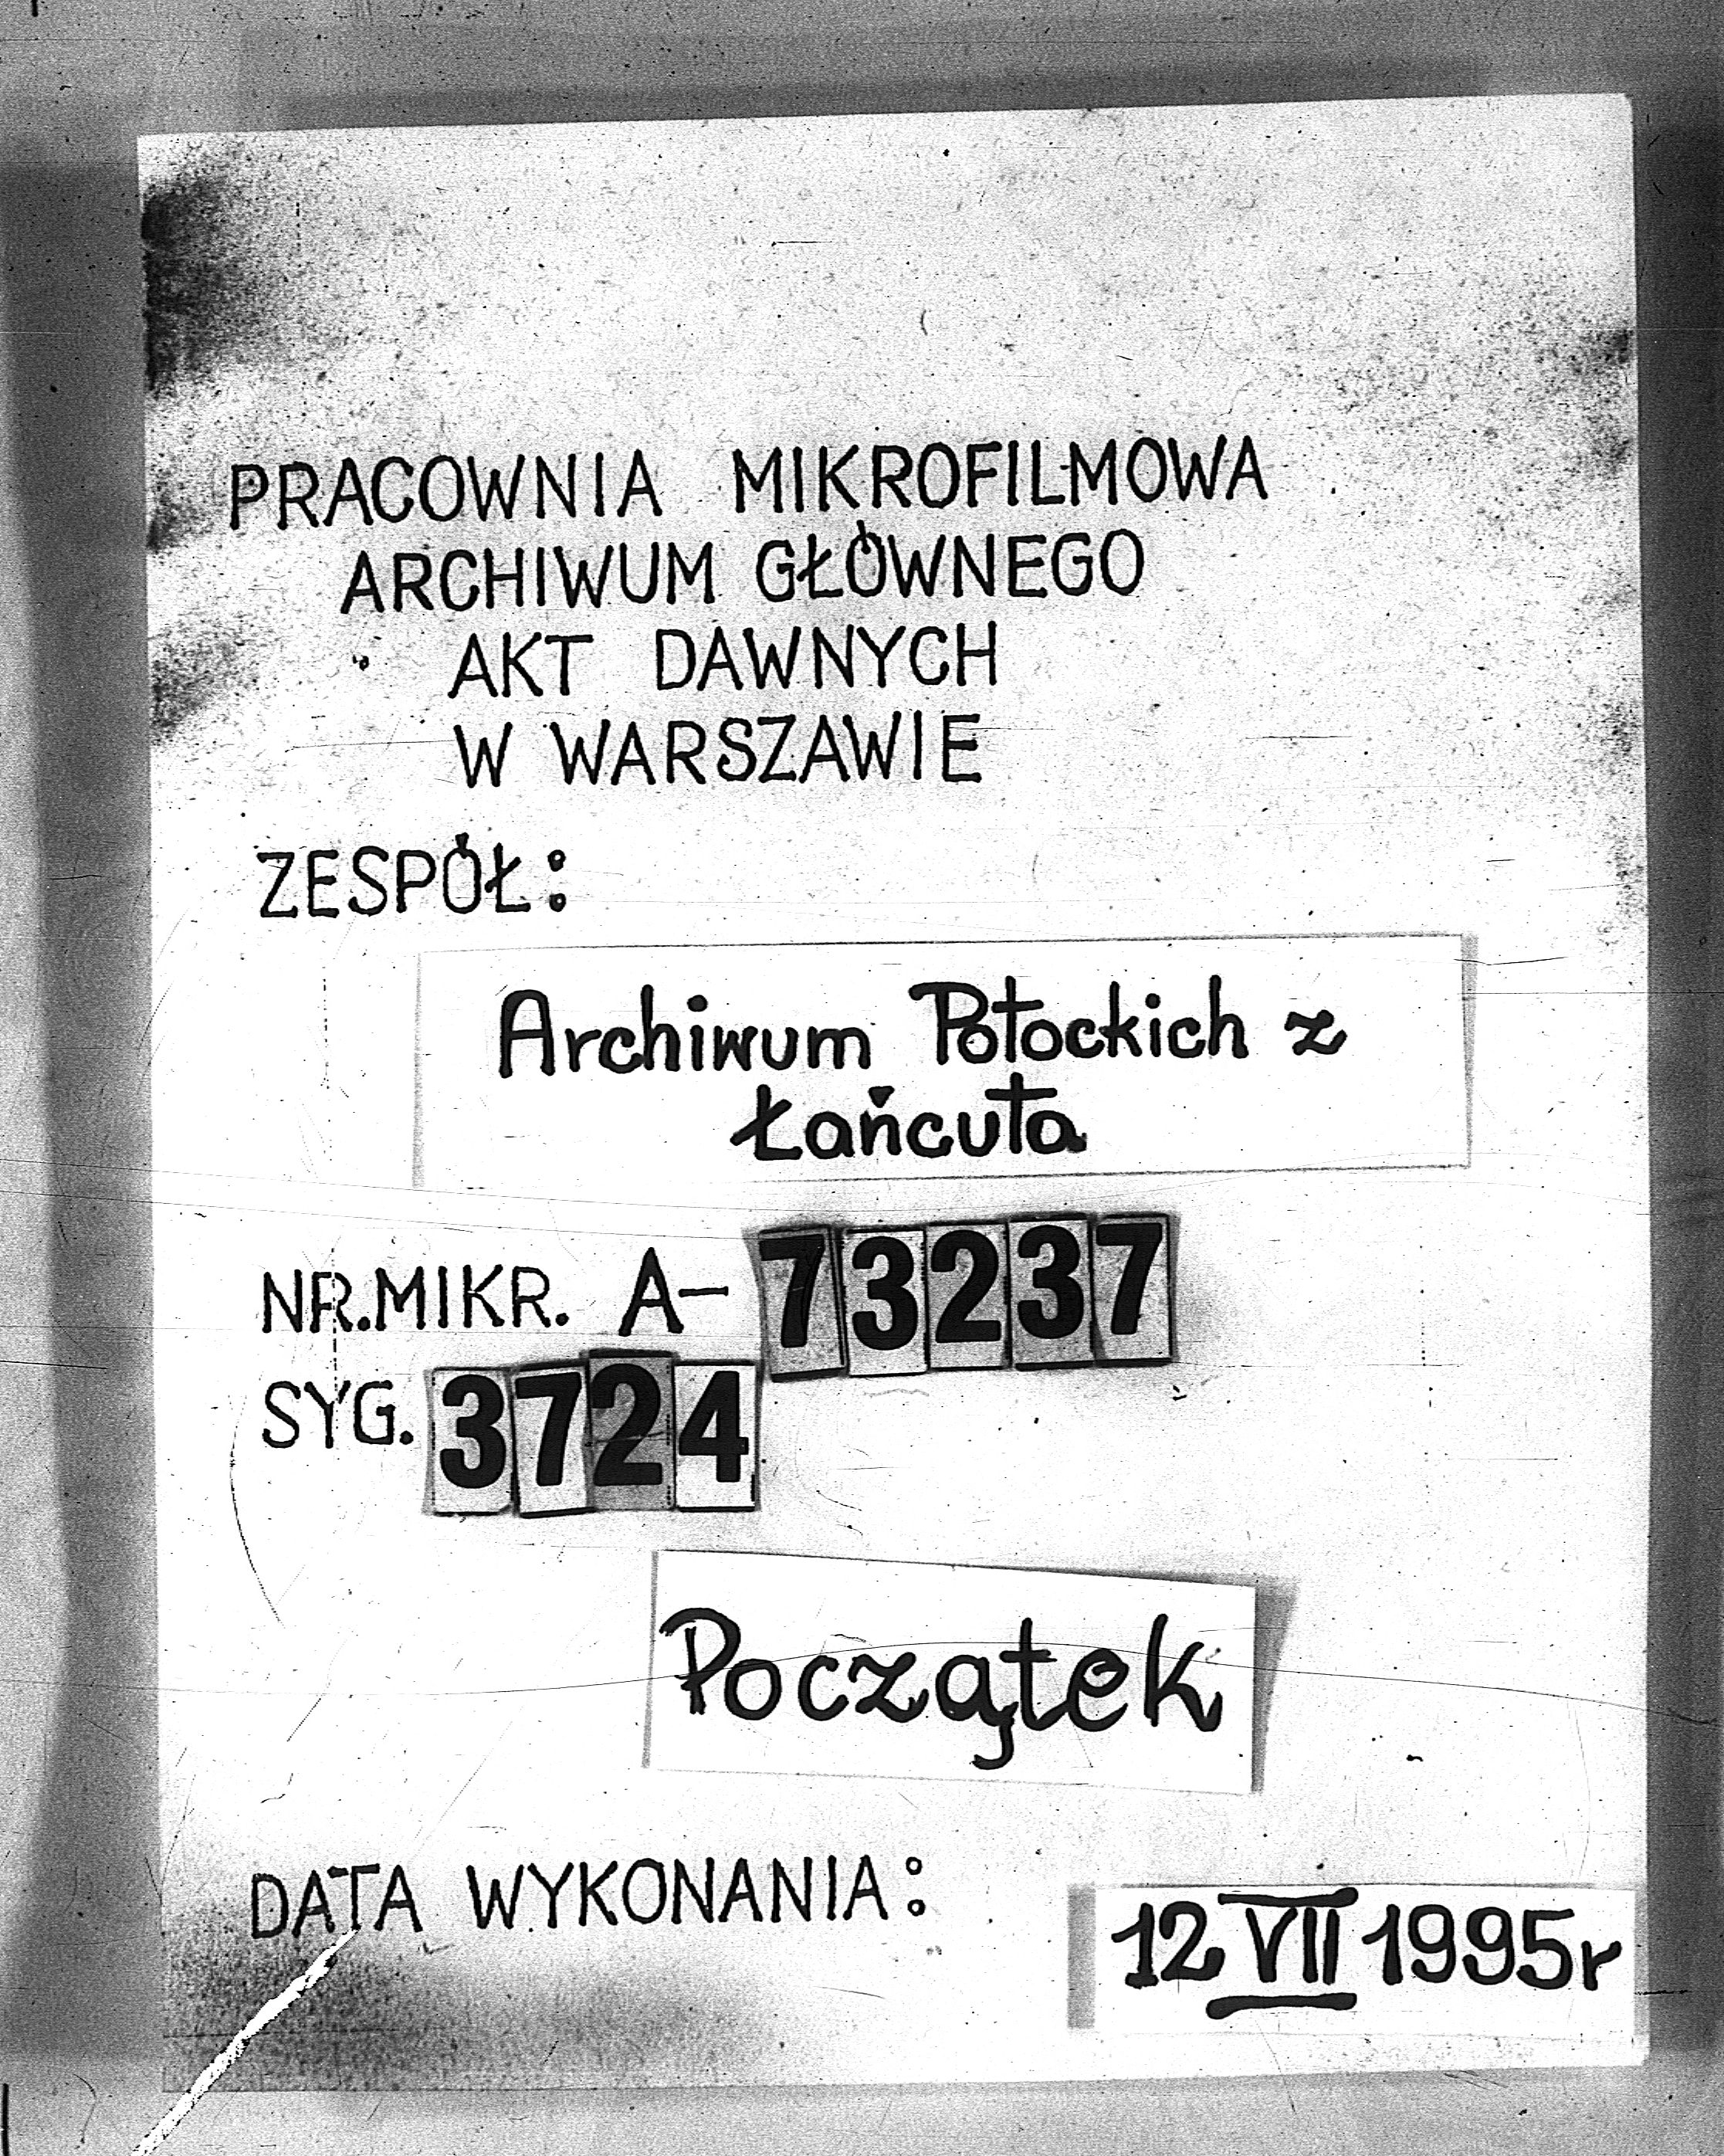 PRACOWNIA MIKROFILMOWA
ARCHIWUM GŁÓWNEGO
AKT DAWNYCH
W WARSZAWIE
ZESPÓŁ:
Archiwum Potockich z
Łańcuta
NR.MIKR. A-73237
SYG. 3724
Początek
DATA WYKONANIA:
12 VII 1995r